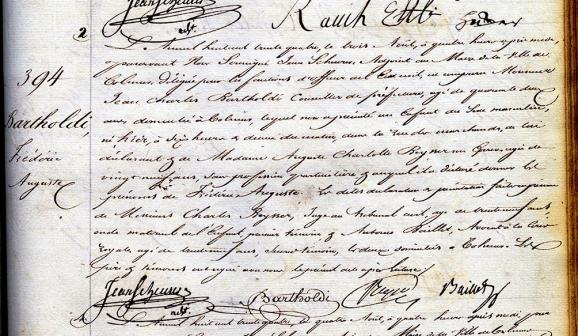 Jean Scheurer
adjt.
Rauch Ettli
2
394
Bartholdi,
Frédéric
Auguste
L'an mil huit cent trente quatre, le trois Août, à quatre heures après midi,
pardevant Nous Soussigné Jean Scheurer, Adjoint au Maire de la Ville de
Colmar, délégué pour les fonctions d'officier de l'état civil, est comparu Monsieur
Jean Charles Bartholdi Conseiller de préfecture, agé de quarante deux
ans, domicilié à Colmar, lequel nous a présenté un Enfant du Sexe masculin,
né hier, à Six heures & demie du matin, dans la rue des marchands, de lui
déclarant & de Madame Auguste Charlotte Beysser son Epouse, agée de
vingt neuf ans, sans profession particulière & auquel il a déclaré donner les
prénoms de Frédéric Auguste. Les dites déclaration & présentation faites en présence
de Messieurs Charles Beysser, Juge au tribunal civil, agé de trente neuf ans,
oncle maternel de l'Enfant, premier témoin & Antoine Baillet, Avocat à la Cour
Royale, agé de trente neuf ans, second témoin, tous deux domiciliés à Colmar. Les
père & témoins ont signé avec nous le présent acte après lecture.
Jean Scheurer
adjt.
Bartholdi
Beysser
Baillet
L'an mil huit cent trente quatre, le quatre Août, à quatre heures après midi, par